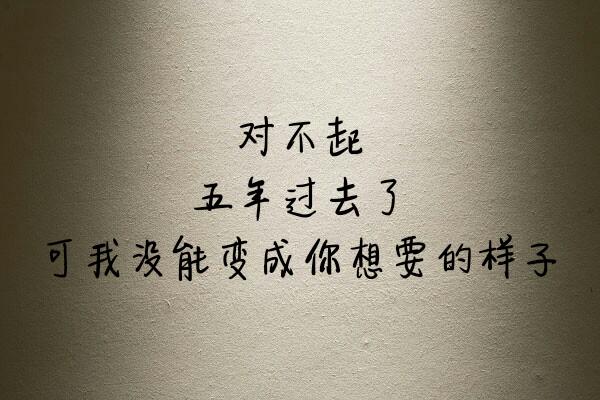 对不起
五年过去了
可我没能变成你想要的样子